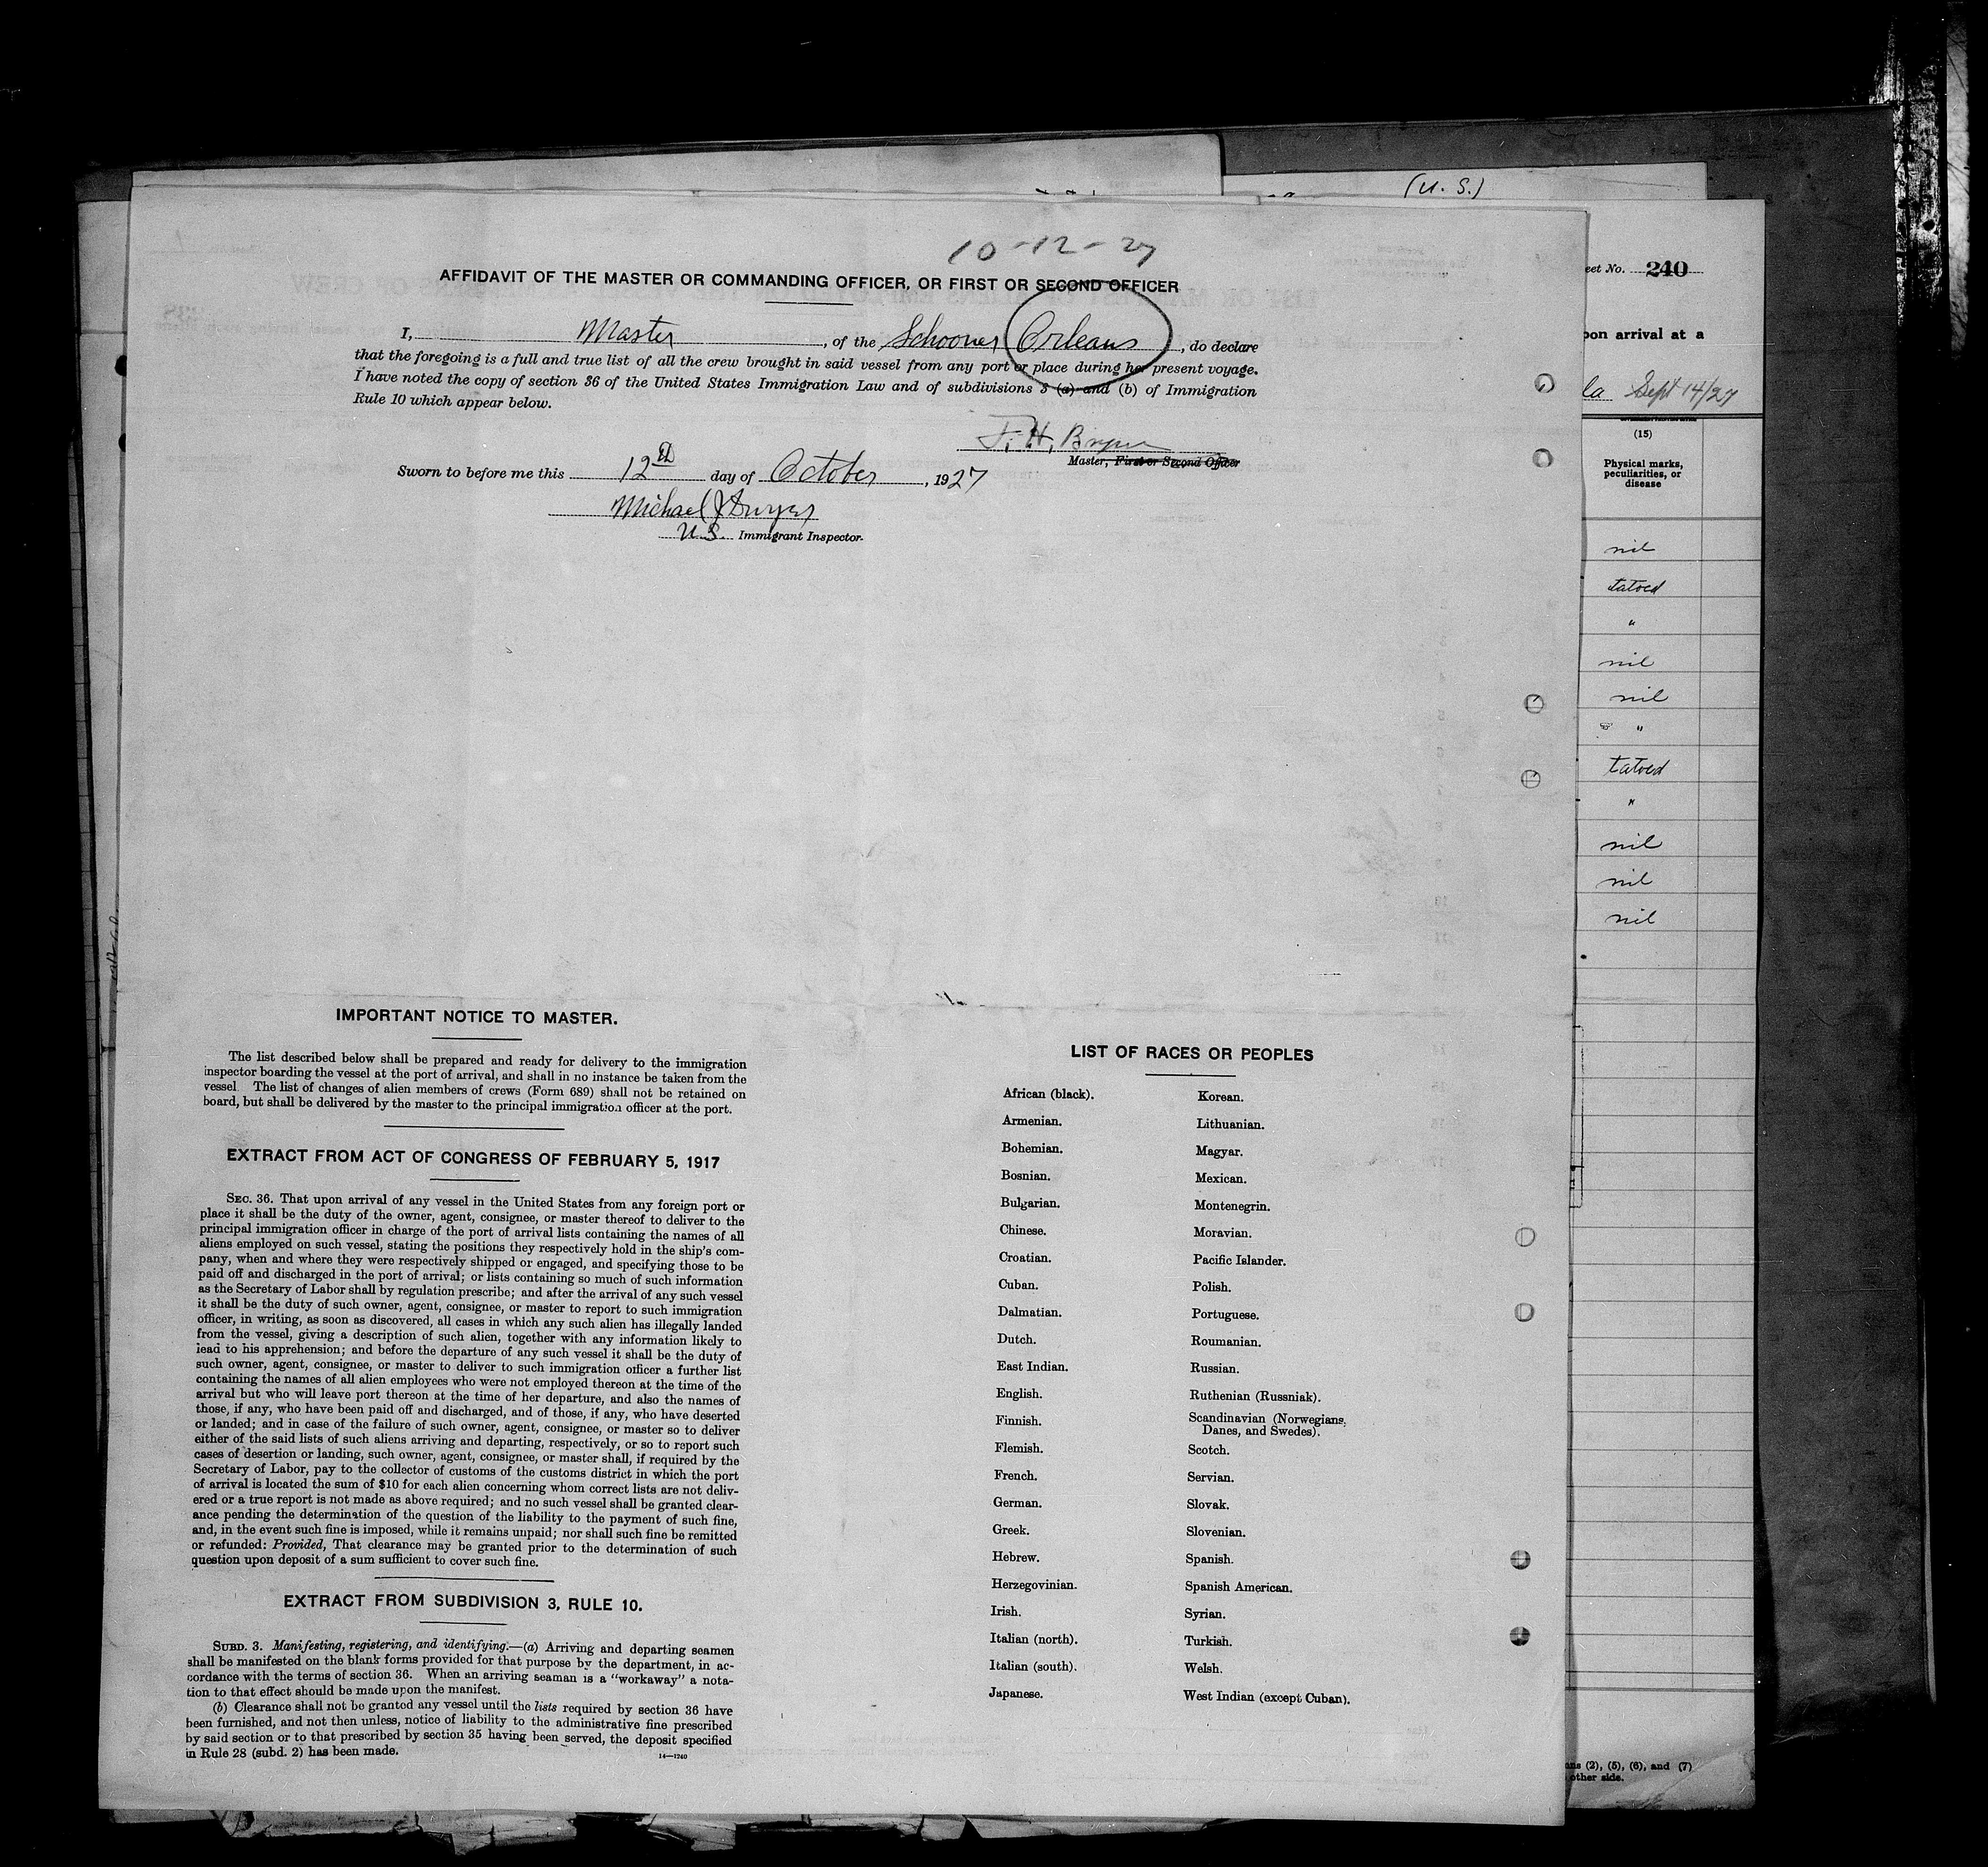 (U. S.)
10-12-27
AFFIDAVIT OF THE MASTER OR COMMANDING OFFICER, OR FIRST OR SECOND OFFICER
I, Master, of the Schooner Orleans, do declare
that the foregoing is a full and true list of all the crew brought in said vessel from any port or place during her present voyage.
I have noted the copy of section 36 of the United States Immigration Law and of subdivisions 3 (a) and (b) of Immigration
Rule 10 which appear below.
Master, First or Second Officer
Sworn to before me this 12th day of October, 1927
Michael J Dwyer
U.S. Immigrant Inspector.
IMPORTANT NOTICE TO MASTER.
The list described below shall be prepared and ready for delivery to the immigration
inspector boarding the vessel at the port of arrival, and shall in no instance be taken from the
vessel. The list of changes of alien members of crews (Form 689) shall not be retained on
board, but shall be delivered by the master to the principal immigration officer at the port.
EXTRACT FROM ACT OF CONGRESS OF FEBRUARY 5, 1917
SEC. 36. That upon arrival of any vessel in the United States from any foreign port or
place it shall be the duty of the owner, agent, consignee, or master thereof to deliver to the
principal immigration officer in charge of the port of arrival lists containing the names of all
aliens employed on such vessel, stating the positions they respectively hold in the ship's com-
pany, when and where they were respectively shipped or engaged, and specifying those to be
paid off and discharged in the port of arrival; or lists containing so much of such information
as the Secretary of Labor shall by regulation prescribe; and after the arrival of any such vessel
it shall be the duty of such owner, agent, consignee, or master to report to such immigration
officer, in writing, as soon as discovered, all cases in which any such alien has illegally landed
from the vessel, giving a description of such alien, together with any information likely to
lead to his apprehension; and before the departure of any such vessel it shall be the duty of
such owner, agent, consignee, or master to deliver to such immigration officer a further list
containing the names of all alien employees who were not employed thereon at the time of the
arrival but who will leave port thereon at the time of her departure, and also the names of
those, if any, who have been paid off and discharged, and of those, if any, who have deserted
or landed; and in case of the failure of such owner, agent, consignee, or master so to deliver
either of the said lists of such aliens arriving and departing, respectively, or so to report such
cases of desertion or landing, such owner, agent, consignee, or master shall, if required by the
Secretary of Labor, pay to the collector of customs of the customs district in which the port
of arrival is located the sum of $10 for each alien concerning whom correct lists are not deliv-
ered or a true report is not made as above required; and no such vessel shall be granted clear-
ance pending the determination of the question of the liability to the payment of such fine,
and, in the event such fine is imposed, while it remains unpaid; nor shall such fine be remitted
or refunded: Provided, That clearance may be granted prior to the determination of such
question upon deposit of a sum sufficient to cover such fine.
EXTRACT FROM SUBDIVISION 3, RULE 10.
SUBD. 3. Manifesting, registering, and identifying.—(a) Arriving and departing seamen
shall be manifested on the blank forms provided for that purpose by the department, in ac-
cordance with the terms of section 36. When an arriving seaman is a "workaway" a nota-
tion to that effect should be made upon the manifest.
(b) Clearance shall not be granted any vessel until the lists required by section 36 have
been furnished, and not then unless, notice of liability to the administrative fine prescribed
by said section or to that prescribed by section 35 having been served, the deposit specified
in Rule 28 (subd. 2) has been made.
14—1240
LIST OF RACES OR PEOPLES
African (black).
Armenian.
Bohemian.
Bosnian.
Bulgarian.
Chinese.
Croatian.
Cuban.
Dalmatian.
Dutch.
East Indian.
English.
Finnish.
Flemish.
French.
German.
Greek.
Hebrew.
Herzegovinian.
Irish.
Italian (north).
Italian (south).
Japanese.
Korean.
Lithuanian.
Magyar.
Mexican.
Montenegrin.
Moravian.
Pacific Islander.
Polish.
Portuguese.
Roumanian.
Russian.
Ruthenian (Russniak).
Scandinavian (Norwegians,
Danes, and Swedes).
Scotch.
Servian.
Slovak.
Slovenian.
Spanish.
Spanish American.
Syrian.
Turkish.
Welsh.
West Indian (except Cuban).
eet No. 240
pon arrival at a
la Sept 14/27
(15)
Physical marks,
peculiarities, or
disease
nil
tatoed
"
nil
nil
"
tatoed
"
nil
nil
nil
ns (2), (5), (6), and (7)
other side.